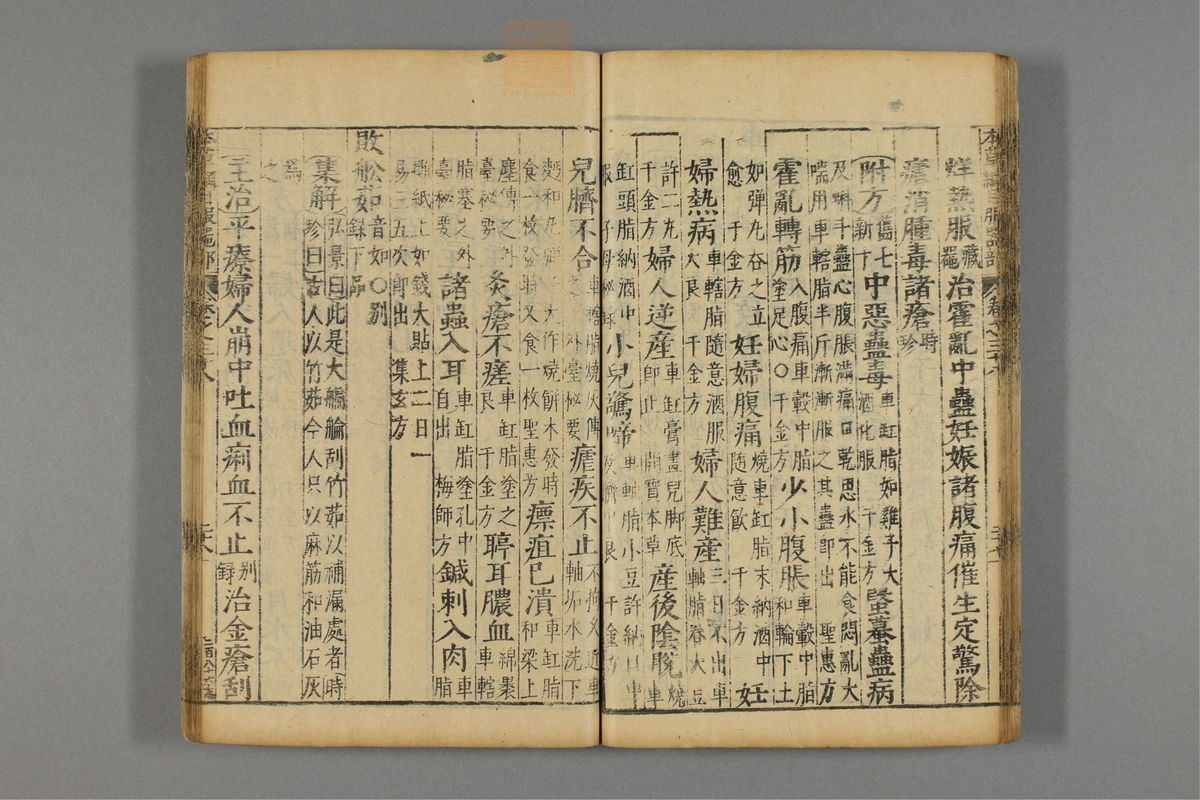 本草綱目服器部 卷之三十八
烊熱服藏器治霍亂中蠱妊娠諸腹痛催生定驚除
瘧消腫毒諸瘡時珍
附方舊七新十中惡蠱毒車缸脂如雞子大酒化服千金方蜑蠚蠱病
及蝌斗蠱心腹脹滿痛口乾思水不能食悶亂大
喘用車轄脂半斤漸漸服之其蠱即出聖惠方
霍亂轉筋入腹痛車轂中脂塗足心○千金方少小腹脹車轂中脂和輪下土
如弹丸吞之立愈千金方妊婦腹痛燒車缸脂末納酒中隨意飲千金方妊
婦熱病車轄脂隨意酒服大良千金方婦人難產三日不出車軸脂吞大豆
許二丸千金方婦人逆產車缸膏畫兒脚底即止開寶本草產後陰脫燒車
缸頭脂納酒中服子母秘錄小兒驚啼車軸脂小豆許納口中及臍良千金方
兒臍不合車轄脂燒灰傅之外臺秘要瘧疾不止不拘久近車軸垢水洗下
麪和丸彈子大作燒餅未發時食一枚發時又食一枚聖惠方瘭疽已潰車缸脂和梁上
塵傅之外臺秘要灸瘡不瘥車缸脂塗之良千金方聤耳膿血綿裹車轄
脂塞之外臺秘要諸蟲入耳車缸脂塗孔中自出梅師方鍼刺入肉車脂
攤紙上如錢大貼上二日一易三五次即出集玄方
敗舩茹音如○別錄下品
集解弘景曰此是大艑艙刮竹茹以補漏處者時珍曰古人以竹茹今人只以麻筋和油石灰
爲之
主治平療婦人崩中吐血痢血不止別錄治金瘡刮